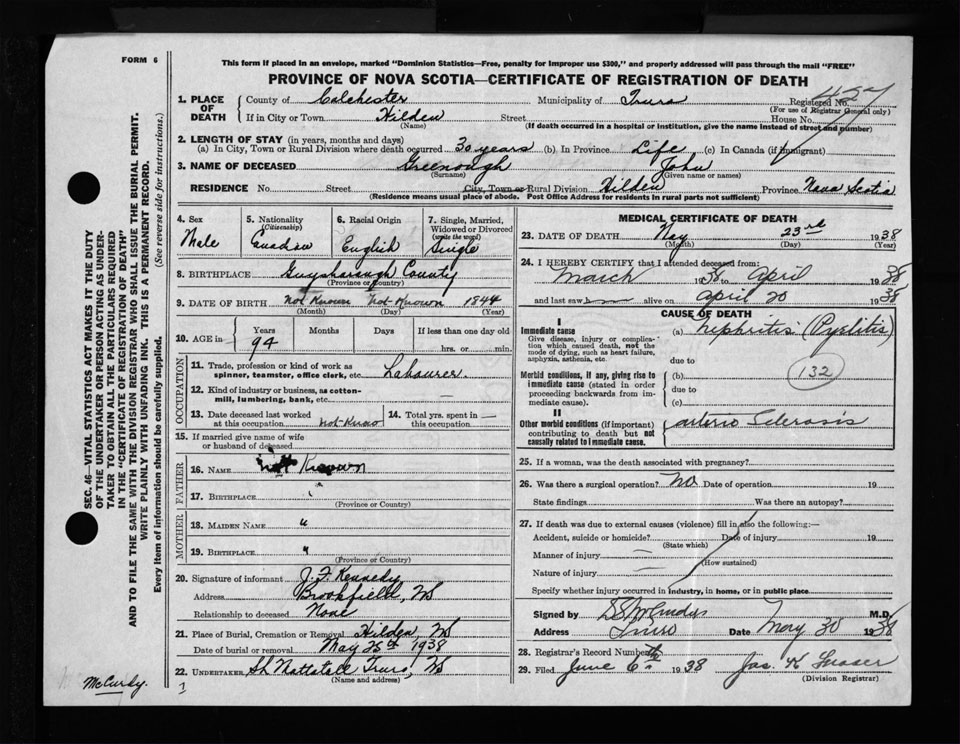 FORM 6
This form if placed in an envelope, marked "Dominion Statistics—Free, penalty for improper use $300," and properly addressed will pass through the mail "FREE"
PROVINCE OF NOVA SCOTIA—CERTIFICATE OF REGISTRATION OF DEATH
SEC. 46—VITAL STATISTICS ACT MAKES IT THE DUTY
OF THE UNDERTAKER OR PERSON ACTING AS UNDER-
TAKER TO OBTAIN ALL THE PARTICULARS REQUIRED
IN THE "CERTIFICATE OF REGISTRATION OF DEATH"
AND TO FILE THE SAME WITH THE DIVISION REGISTRAR WHO SHALL ISSUE THE BURIAL PERMIT.
WRITE PLAINLY WITH UNFADING INK. THIS IS A PERMANENT RECORD.
Every item of information should be carefully supplied. (See reverse side for instructions.)
McCurdy.
1. PLACE OF DEATH County of Colchester Municipality of Truro Registered No. 427
(For use of Registrar General only)
If in City or Town Hilden Street House No.
(Name) (If death occurred in a hospital or institution, give the name instead of street and number)
2. LENGTH OF STAY (in years, months and days)
(a) In City, Town or Rural Division where death occurred 30 years (b) In Province Life (c) In Canada (if immigrant)
3. NAME OF DECEASED Greenough John
(Surname) (Given name or names)
RESIDENCE No. Street City, Town or Rural Division Hilden Province Nova Scotia
(Residence means usual place of abode. Post Office Address for residents in rural parts not sufficient)
4. Sex 5. Nationality (Citizenship) 6. Racial Origin 7. Single, Married, Widowed or Divorced (write the word)
Male Canadian English Single
8. BIRTHPLACE Guysborough County
(Province or County)
9. DATE OF BIRTH Not Known Not-Known 1844
(Month) (Day) (Year)
10. AGE in Years Months Days If less than one day old
94 hrs. or min.
OCCUPATION
11. Trade, profession or kind of work as
spinner, teamster, office clerk, etc. Labourer
12. Kind of industry or business, as cotton-
mill, lumbering, bank, etc. —
13. Date deceased last worked
at this occupation not-Know
14. Total yrs. spent in
this occupation —
15. If married give name of wife
or husband of deceased
FATHER
16. NAME not Known
17. BIRTHPLACE "
(Province or Country)
MOTHER
18. MAIDEN NAME "
19. BIRTHPLACE "
(Province or Country)
20. Signature of informant J. F. Kennedy
Address Brookfield, NS
Relationship to deceased None
21. Place of Burial, Cremation or Removal Hilden, NS
Date of burial or removal May 25th 1938
22. UNDERTAKER Truro, NS
(Name and address)
MEDICAL CERTIFICATE OF DEATH
23. DATE OF DEATH May 23rd 1938
(Month) (Day) (Year)
24. I HEREBY CERTIFY that I attended deceased from:
March April 1938
and last saw alive on April 20 1938
CAUSE OF DEATH
I
Immediate cause (a) Nephritis (Pyelitis)
Give disease, injury or complica-
tion which caused death, not the
mode of dying, such as heart failure,
asphyxia, asthenia, etc.
due to
Morbid conditions, if any, giving rise to
immediate cause (stated in order
proceeding backwards from im-
mediate cause).
(b) 132
due to
(c)
II
Other morbid conditions (if important)
contributing to death but not
causally related to immediate cause.
arterio Sclerosis
25. If a woman, was the death associated with pregnancy?
26. Was there a surgical operation? No Date of operation 19
State findings Was there an autopsy?
27. If death was due to external causes (violence) fill in also the following:—
Accident, suicide or homicide? Date of injury 19
(State which)
Manner of injury —
(How sustained)
Nature of injury —
Specify whether injury occurred in industry, in home, or in public place
Signed by M.D.
Address Truro Date May 30 1938
28. Registrar's Record Number
29. Filed June 6th 1938 Jas. K Fraser
(Division Registrar)